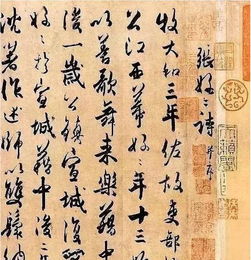 張好〻詩 并序
牧大和三年佐故吏部
公江西幕好〻年十三
以善歌舞来樂籍中
後一歲公鎮宣城復
好〻於宣城籍中後二
沈著作述師以雙鬟納